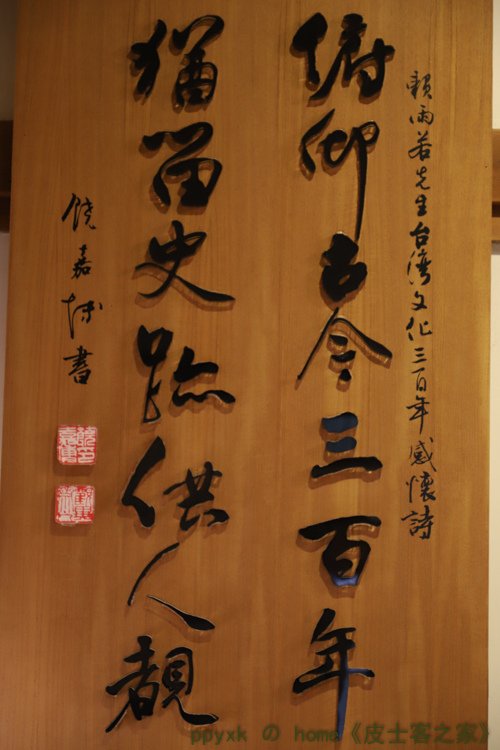 賴雨若先生台湾文化三百年感懷詩
俯仰古今三百年
猶留史跡供人観
饒嘉博書
ppyxk の home《皮士客之家》